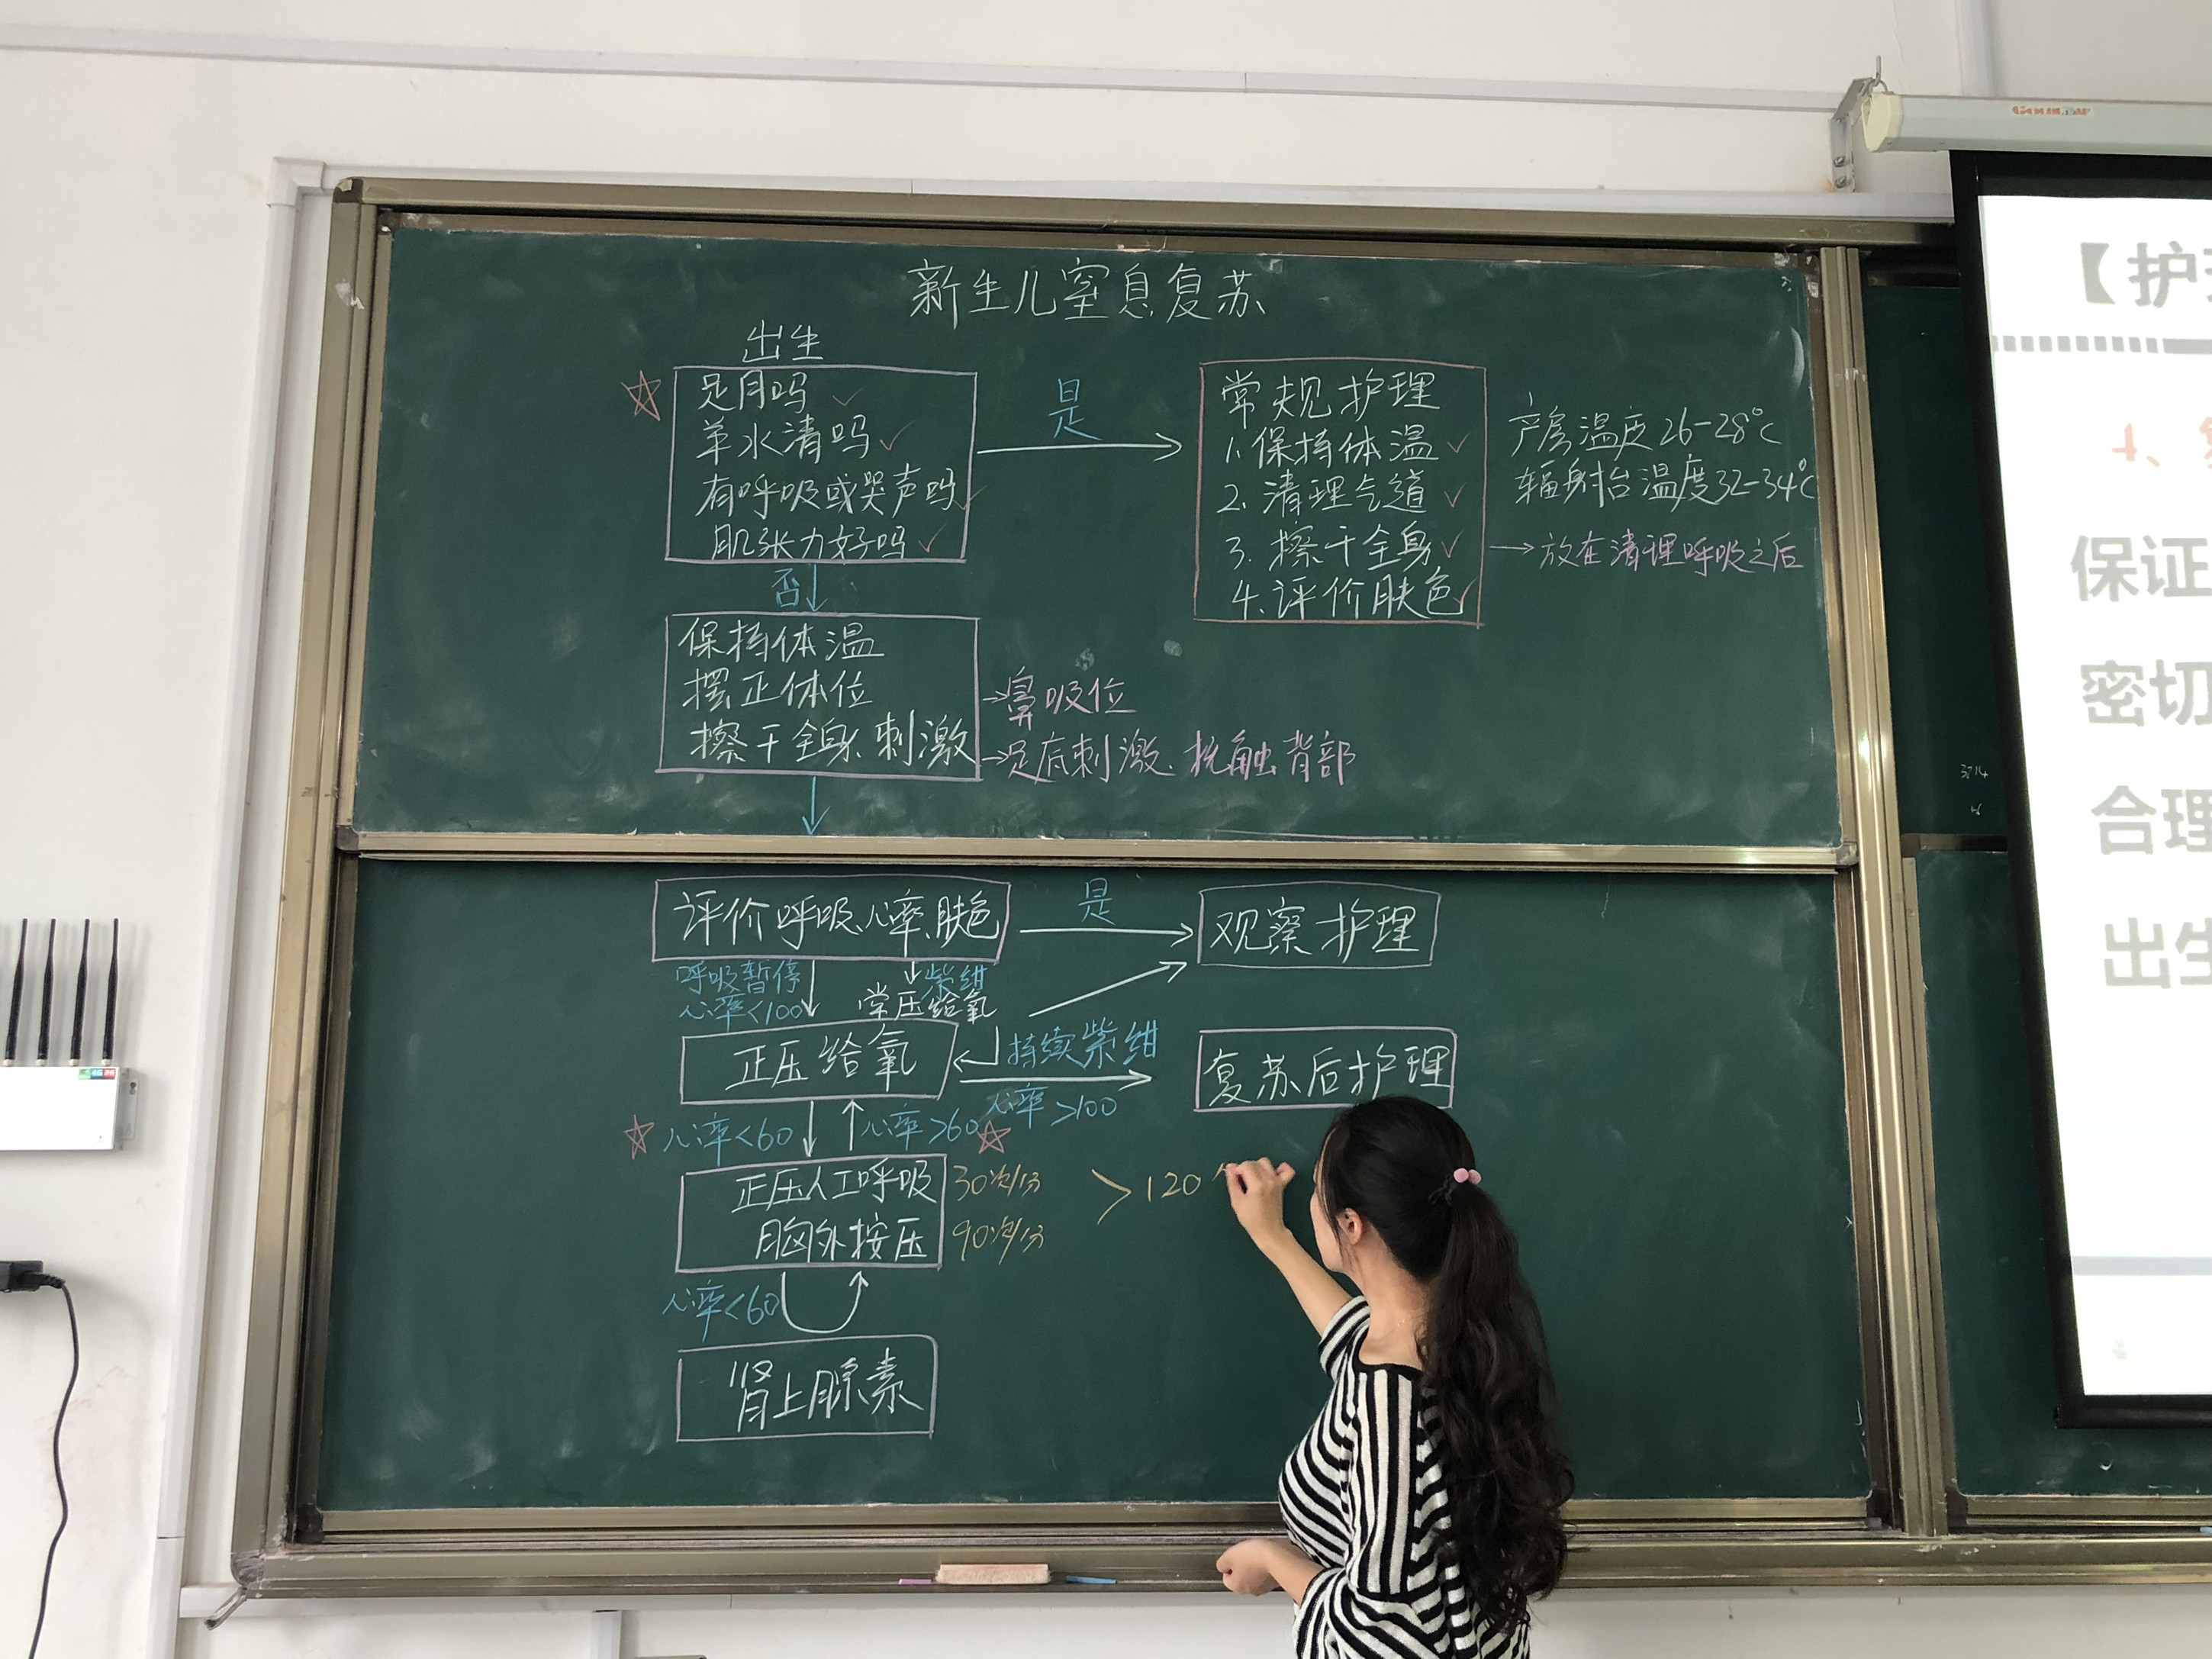 新生儿窒息复苏
出生
足月吗 ✓
羊水清吗 ✓
有呼吸或哭声吗 ✓
肌张力好吗 ✓
是
常规护理
1.保持体温 ✓
2.清理气道 ✓
3.擦干全身 ✓
4.评价肤色 ✓
产房温度26-28℃
辐射台温度32-34℃
→放在清理呼吸之后
否
保持体温
摆正体位
擦干全身、刺激
→鼻吸位
→足底刺激、抚触背部
评价呼吸、心率、肤色
是
观察护理
呼吸暂停
心率<100
紫绀
常压给氧
正压给氧
持续紫绀
心率>100
复苏后护理
心率<60
心率>60
正压人工呼吸 30次/分
胸外按压 90次/分
>120
心率<60
肾上腺素
【护
保证
密切
合理
出生